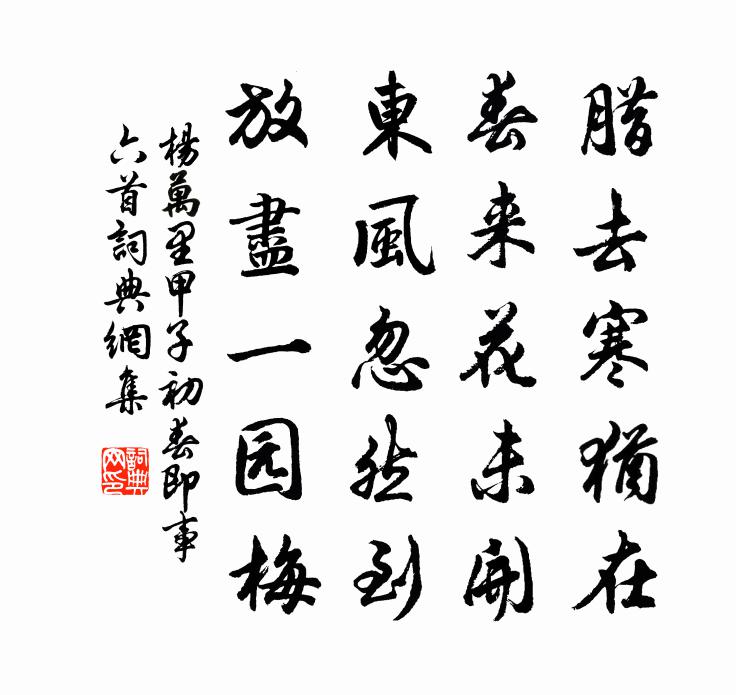 腊去寒猶在
春来花未開
東風忽然到
放盡一园梅
楊萬里甲子初春即事
六首詞典網集
詞典
网印